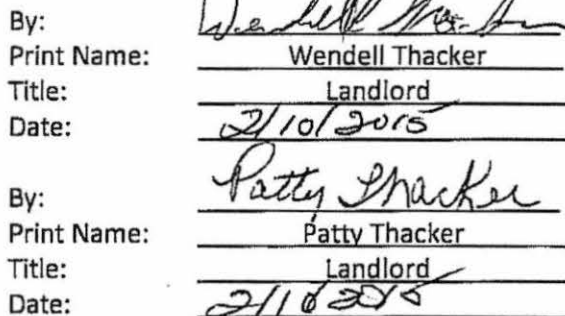 By: Wendell Thacker
Print Name: Wendell Thacker
Title: Landlord
Date: 2/10/2015
By: Patty Thacker
Print Name: Patty Thacker
Title: Landlord
Date: 2/10 2015